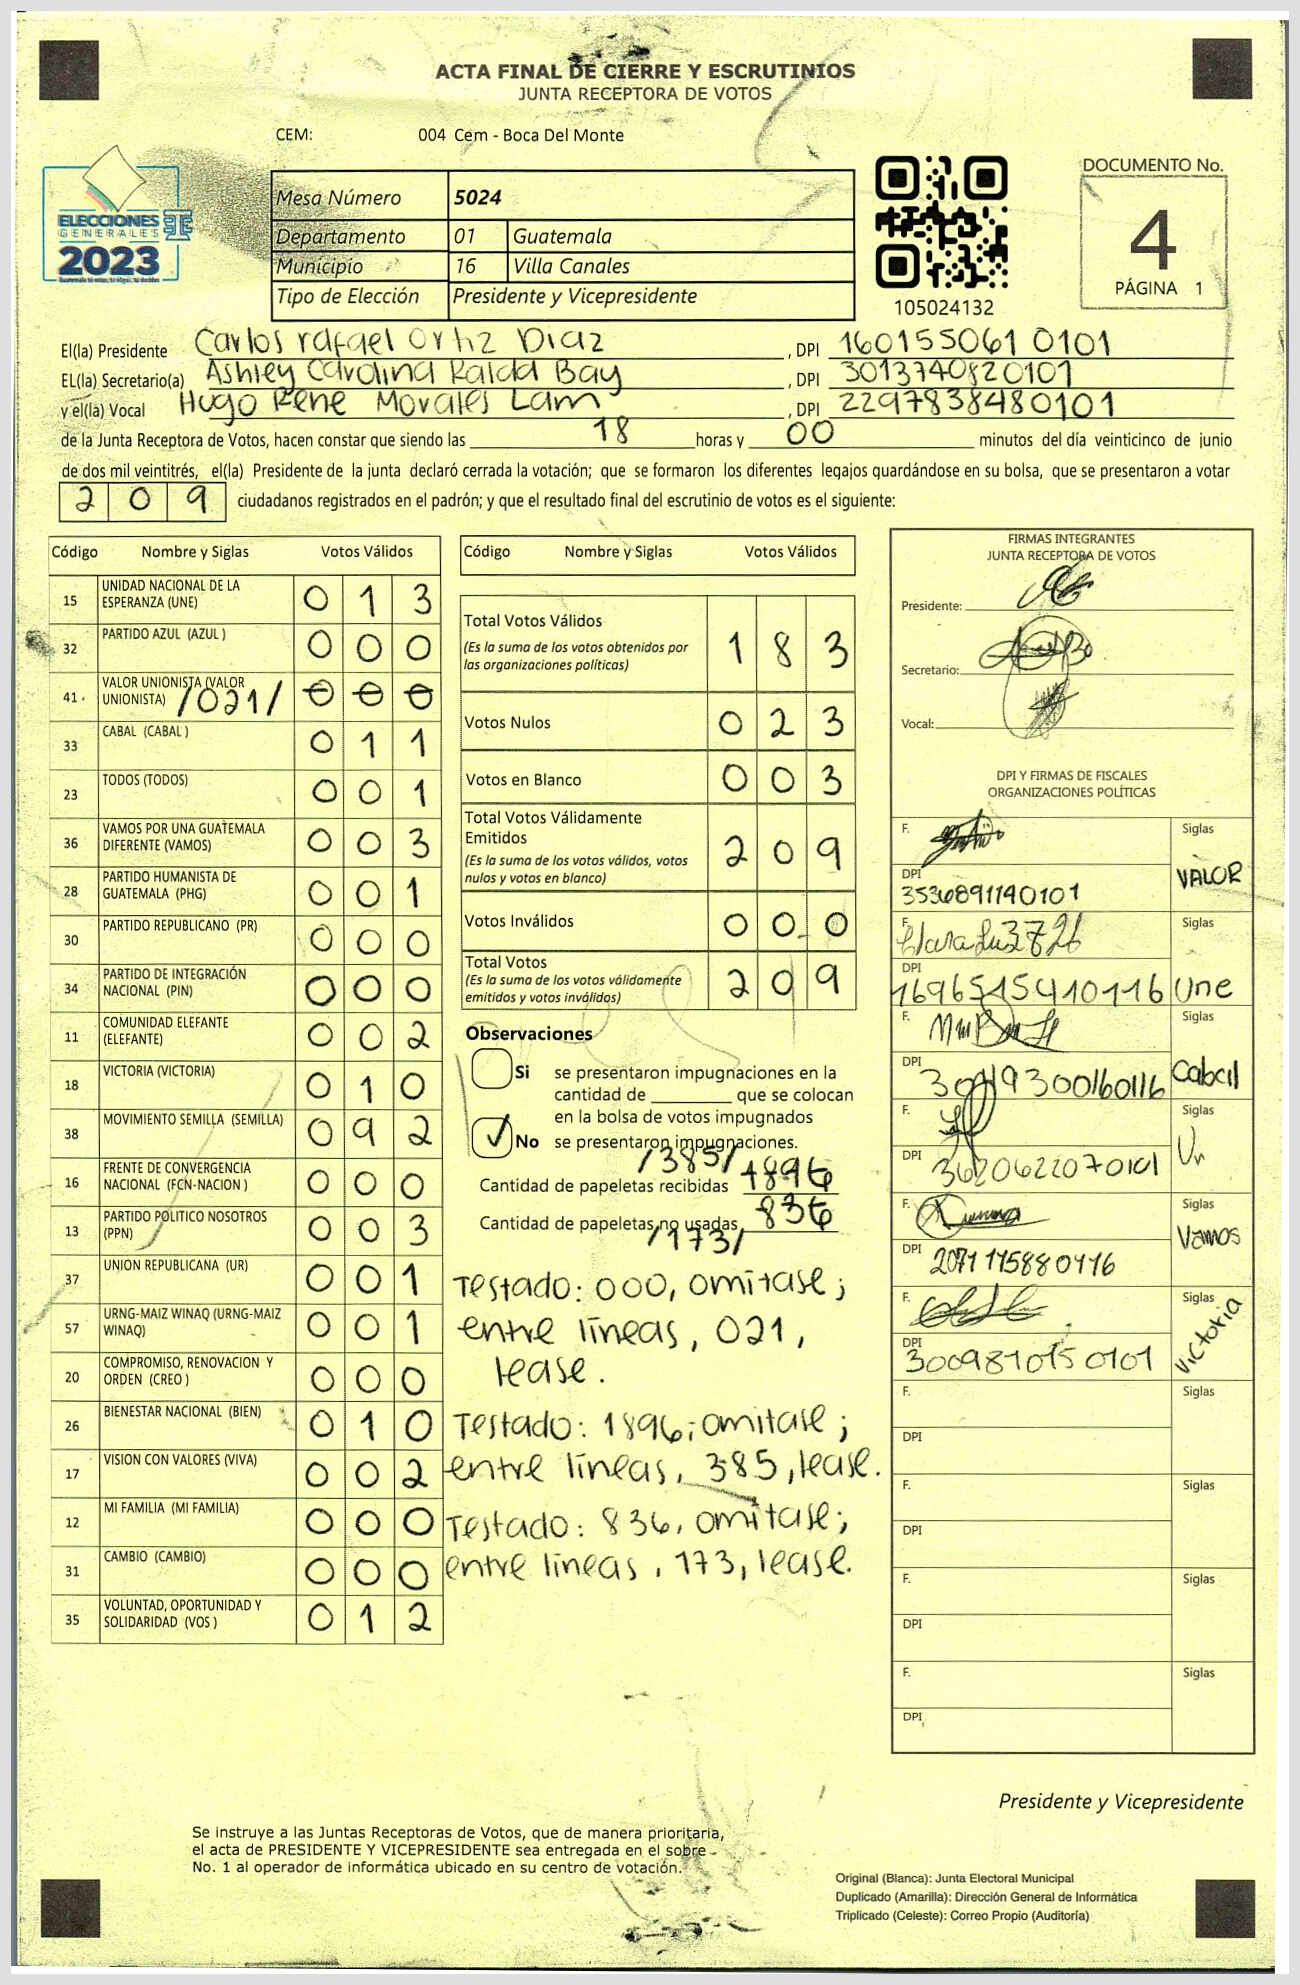 ACTA FINAL DE CIERRE Y ESCRUTINIOS
JUNTA RECEPTORA DE VOTOS
CEM: 004 Cem - Boca Del Monte
ELECCIONES
GENERALES
2023
Mesa Número 5024
Departamento 01 Guatemala
Municipio 16 Villa Canales
Tipo de Elección Presidente y Vicepresidente
105024132
DOCUMENTO No.
4
PÁGINA 1
El(la) Presidente Carlos rafael Ortiz Diaz , DPI 160155061 0101
EL(la) Secretario(a) Ashley Carolina Ralda Bay , DPI 3013740820101
y el(la) Vocal Hugo Rene Morales Lam , DPI 2297838480101
de la Junta Receptora de Votos, hacen constar que siendo las 18 horas y 00 minutos del día veinticinco de junio
de dos mil veintitrés, el(la) Presidente de la junta declaró cerrada la votación; que se formaron los diferentes legajos quardándose en su bolsa, que se presentaron a votar
209 ciudadanos registrados en el padrón; y que el resultado final del escrutinio de votos es el siguiente:
Código Nombre y Siglas Votos Válidos
15 UNIDAD NACIONAL DE LA ESPERANZA (UNE) 0 1 3
32 PARTIDO AZUL (AZUL ) 0 0 0
41 VALOR UNIONISTA (VALOR UNIONISTA) /021/ 0 0 0
33 CABAL (CABAL ) 0 1 1
23 TODOS (TODOS) 0 0 1
36 VAMOS POR UNA GUATEMALA DIFERENTE (VAMOS) 0 0 3
28 PARTIDO HUMANISTA DE GUATEMALA (PHG) 0 0 1
30 PARTIDO REPUBLICANO (PR) 0 0 0
34 PARTIDO DE INTEGRACIÓN NACIONAL (PIN) 0 0 0
11 COMUNIDAD ELEFANTE (ELEFANTE) 0 0 2
18 VICTORIA (VICTORIA) 0 1 0
38 MOVIMIENTO SEMILLA (SEMILLA) 0 9 2
16 FRENTE DE CONVERGENCIA NACIONAL (FCN-NACION ) 0 0 0
13 PARTIDO POLITICO NOSOTROS (PPN) 0 0 3
37 UNION REPUBLICANA (UR) 0 0 1
57 URNG-MAIZ WINAQ (URNG-MAIZ WINAQ) 0 0 1
20 COMPROMISO, RENOVACION Y ORDEN (CREO ) 0 0 0
26 BIENESTAR NACIONAL (BIEN) 0 1 0
17 VISION CON VALORES (VIVA) 0 0 2
12 MI FAMILIA (MI FAMILIA) 0 0 0
31 CAMBIO (CAMBIO) 0 0 0
35 VOLUNTAD, OPORTUNIDAD Y SOLIDARIDAD (VOS ) 0 1 2
Código Nombre y Siglas Votos Válidos
Total Votos Válidos 1 8 3
(Es la suma de los votos obtenidos por
las organizaciones políticas)
Votos Nulos 0 2 3
Votos en Blanco 0 0 3
Total Votos Válidamente
Emitidos 2 0 9
(Es la suma de los votos válidos, votos
nulos y votos en blanco)
Votos Inválidos 0 0 0
Total Votos 2 0 9
(Es la suma de los votos válidamente
emitidos y votos inválidos)
Observaciones
Si se presentaron impugnaciones en la
cantidad de ________ que se colocan
en la bolsa de votos impugnados
✓ No se presentaron impugnaciones.
/385/
Cantidad de papeletas recibidas 1896
Cantidad de papeletas no usadas 836
/173/
Testado: 000, omitase;
entre líneas, 021,
lease.
Testado: 1896; omitase;
entre líneas, 385, lease.
Testado: 836, omitase;
entre líneas, 173, lease.
FIRMAS INTEGRANTES
JUNTA RECEPTORA DE VOTOS
Presidente:
Secretario:
Vocal:
DPI Y FIRMAS DE FISCALES
ORGANIZACIONES POLÍTICAS
F. Siglas
DPI 3536891140101 VALOR
F. Siglas
DPI 1696515410116 Une
F. Siglas
DPI Cabal
F. Siglas
DPI 3620622070101
F. Siglas
DPI 2071115880116 Vamos
F. Siglas
DPI 3009810150101 Victoria
F. Siglas
DPI
F. Siglas
DPI
F. Siglas
DPI
F. Siglas
DPI
Presidente y Vicepresidente
Se instruye a las Juntas Receptoras de Votos, que de manera prioritaria,
el acta de PRESIDENTE Y VICEPRESIDENTE sea entregada en el sobre
No. 1 al operador de informática ubicado en su centro de votación.
Original (Blanca): Junta Electoral Municipal
Duplicado (Amarilla): Dirección General de Informática
Triplicado (Celeste): Correo Propio (Auditoría)